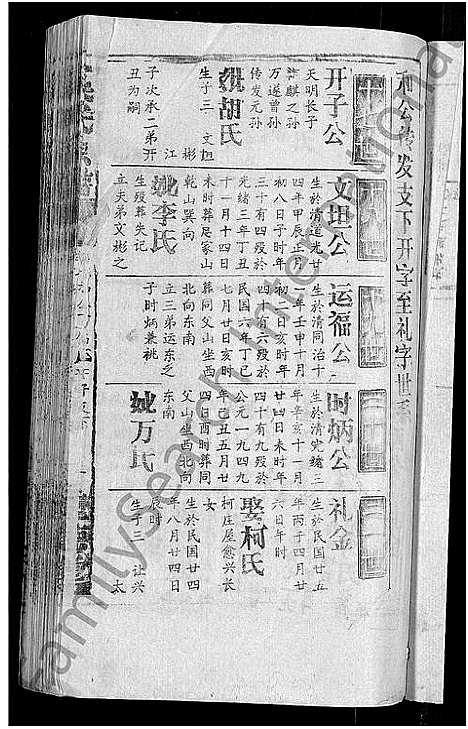 和公传发支下开字至礼字世系
开子公
天明长子
麒之孙
万遂曾孙
传发元孙
胡氏
生子三 文坦
彬
江
子次承二弟开
丑为嗣
文坦公
生於清道光廿
四年甲辰正月
初八日子时年
三十有四殁於
光绪三年丁丑
十一月十四日
未时葬尼冢山
乾山巽向
妣李氏
生殁葬失记
立天弟文彬之
运福公
生於清同治十
一年壬申十月
初二日亥时年
四十有六殁於
民国六年丁巳
七月廿日亥时
葬同父山坐西
北向东南
立三弟运东之
子时炳兼祧
时炳公
生於清光绪三
年辛亥十一月
廿四日未时年
四十有九殁於
公元一九四九
年己丑五月廿
四日酉时葬同
父山坐西北向
东南
妣万氏
礼金
生於民国廿五
年丙子四月廿
六日午时
娶柯氏
柯庄屋愈兴长
女
生於民国廿四
年八月廿四日
辰时
生子三 让兴
太
FamilySearch International